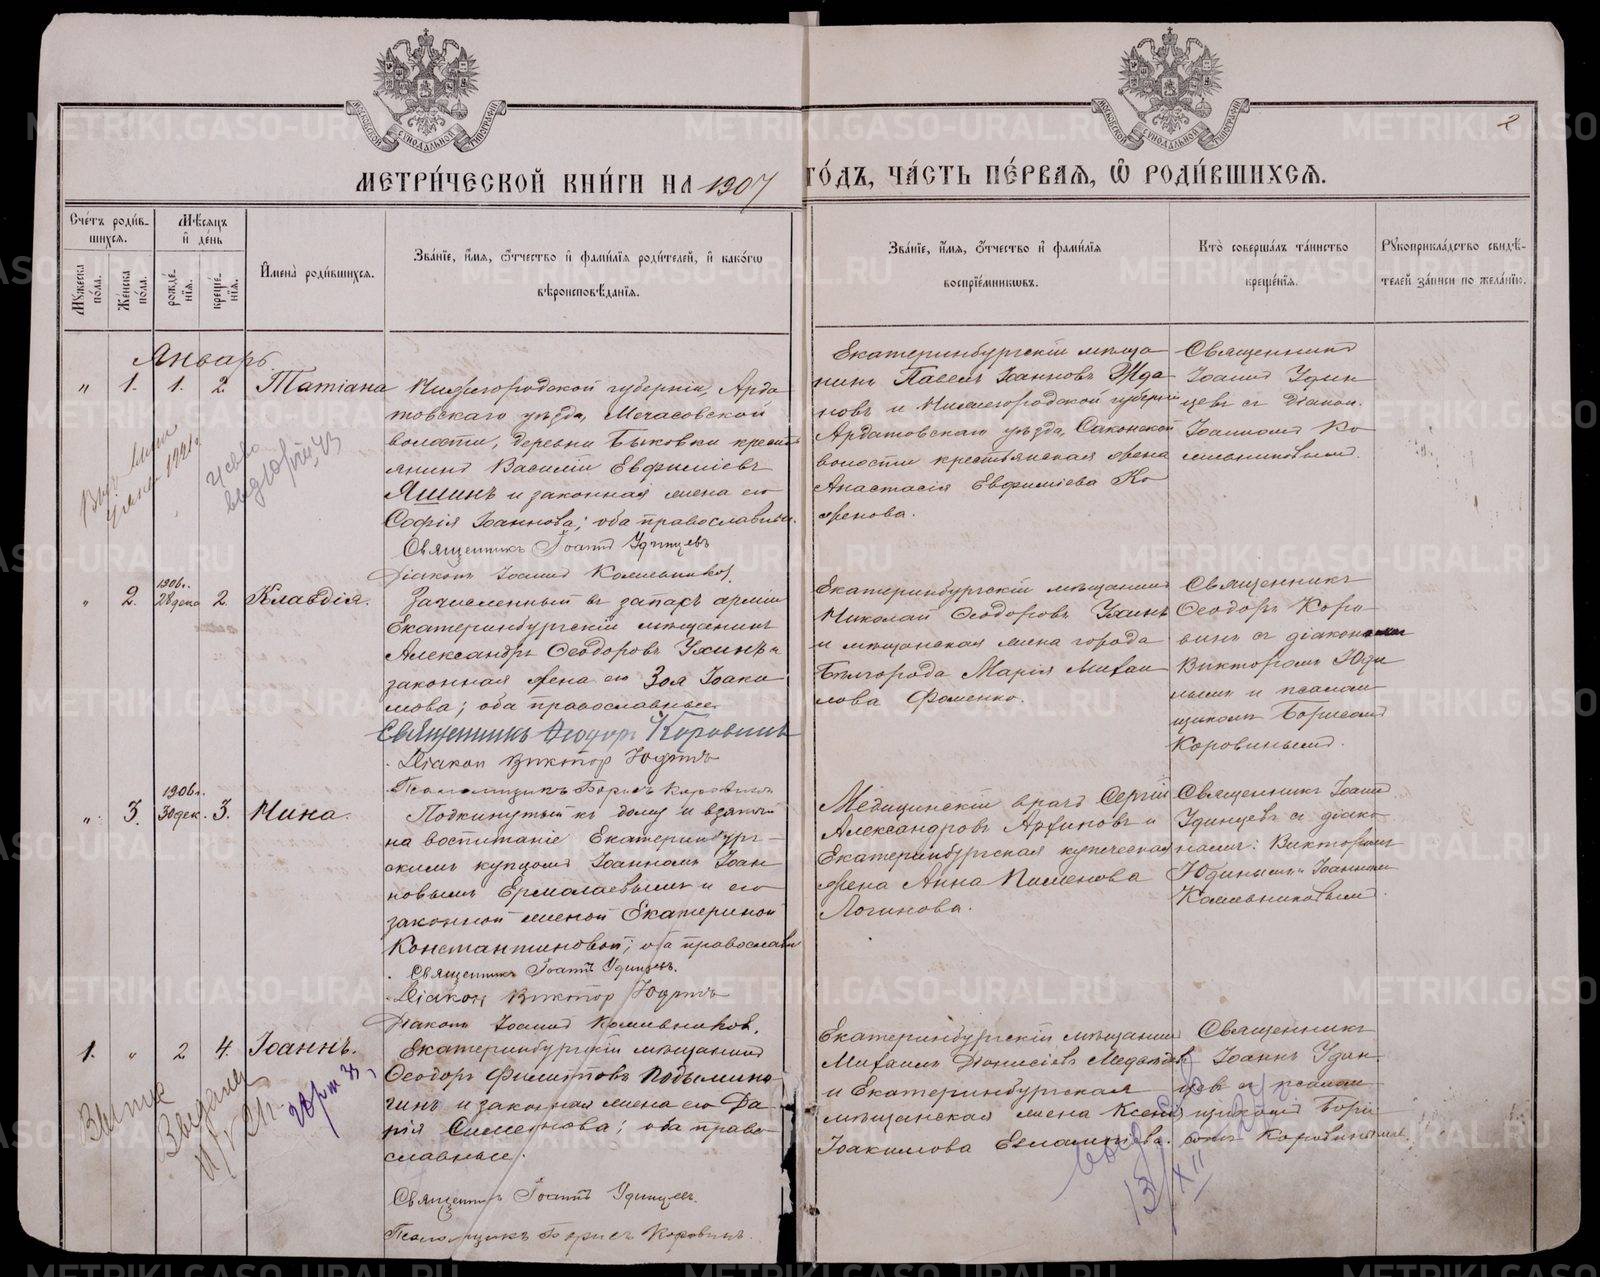 МЕТРИ́ЧЕСКОЙ КНИ́ГИ НА 1907 ГО́ДЪ, ЧА́СТЬ ПЕ́РВАѦ, Ѡ҆ РОДИ́ВШИХСѦ.
2
МОСКОВСКОЙ СѴНОДАЛЬНОЙ ТИПОГРАФІИ
МОСКОВСКОЙ СѴНОДАЛЬНОЙ ТИПОГРАФІИ
Сче́тъ роди́в-
шихсѧ.
Мѹжеска
по́ла.
Же́нска
по́ла.
Мѣ́сѧцъ
и҆ де́нь
рожде́-
нїѧ.
креще́-
нїѧ.
И҆мена̀ роди́вшихсѧ.
Зва́нїе, и҆́мѧ, ѻ҆́тчество и҆ фами́лїѧ роди́телей, и҆ како́гѡ
вѣроисповѣ́данїѧ.
Зва́нїе, и҆́мѧ, ѻ҆́тчество и҆ фами́лїѧ
воспрїе́мникѡвъ.
Кто̀ соверша́лъ та́инство
креще́нїѧ.
Рѹкоприкла́дство свидѣ́-
телей за́писи по жела́нїю.
Январь.
" 1. 1. 2. Татіана
Нижегородской губерніи, Арда
товскаго уѣзда, Мечасовской
волости, деревни Быковки кресть
янинъ Василій Евфиміевъ
Яшинъ и законная жена его
Софія Іоаннова; оба православные.
Священникъ Іоаннъ Удинцевъ
Діаконъ Іоаннъ Комельниковъ.
Екатеринбургскій мѣща
нинъ Павелъ Іоанновъ Жда
новъ и Нижегородской губерніи
Ардатовскаго уѣзда, Саконской
волости крестьянская жена
Анастасія Евфиміева Ко
женова.
Священникъ
Іоаннъ Удин
цевъ съ діакон.
Іоанномъ Ко
мельниковымъ.
" 2. 1906г. 28 дека 2. Клавдія.
Зачисленный въ запасъ арміи
Екатеринбургскій мѣщанинъ
Александръ Ѳеодоровъ Ухинъ и
законная жена его Зоя Іоаки
мова; оба православные.
Священникъ Ѳеодоръ Коровинъ
Діаконъ Викторъ Юдинъ
Псаломщикъ Борисъ Коровинъ
Екатеринбургскій мѣщанинъ
Николай Ѳеодоровъ Ухинъ
и мѣщанская жена города
Бѣлгорода Марія Михаи
лова Фоменко.
Священникъ
Ѳеодоръ Коро
винъ съ діакономъ
Викторомъ Юди
нымъ и псалом
щикомъ Борисомъ
Коровинымъ.
" 3. 1906г. 30 дек. 3. Нина.
Подкинутый къ дому и взятый
на воспитаніе Екатеринбург-
скимъ купцомъ Іоанномъ Іоан
новымъ Ермолаевымъ и его
законной женой Екатериной
Константиновой; оба православн
Священникъ Іоаннъ Удинцевъ.
Діаконъ Викторъ Юдинъ
Діаконъ Іоаннъ Комельниковъ.
Медицинскій врачъ Сергій
Александровъ и
Екатеринбургская купеческая
жена Анна Пименова
Логинова.
Священникъ Іоаннъ
Удинцевъ съ діако
нами: Викторомъ
Юдинымъ и Іоанномъ
Комельниковымъ.
1. " 2 4. Іоаннъ.
Екатеринбургскій мѣщанинъ
Ѳеодоръ Филипповъ
и законная жена его Да
рія Симеонова; оба право
славные.
Священникъ Іоаннъ Удинцевъ.
Псаломщикъ Борисъ Коровинъ.
Екатеринбургскій мѣщанинъ
Михаилъ Діонисіевъ
и Екатеринбургская
мѣщанская жена Ксенія
Іоакимова
Священникъ
Іоаннъ Удин
цевъ съ псалом
щикомъ Бори
сомъ Коровинымъ.
13/XII
METRIKI.GASO-URAL.RU